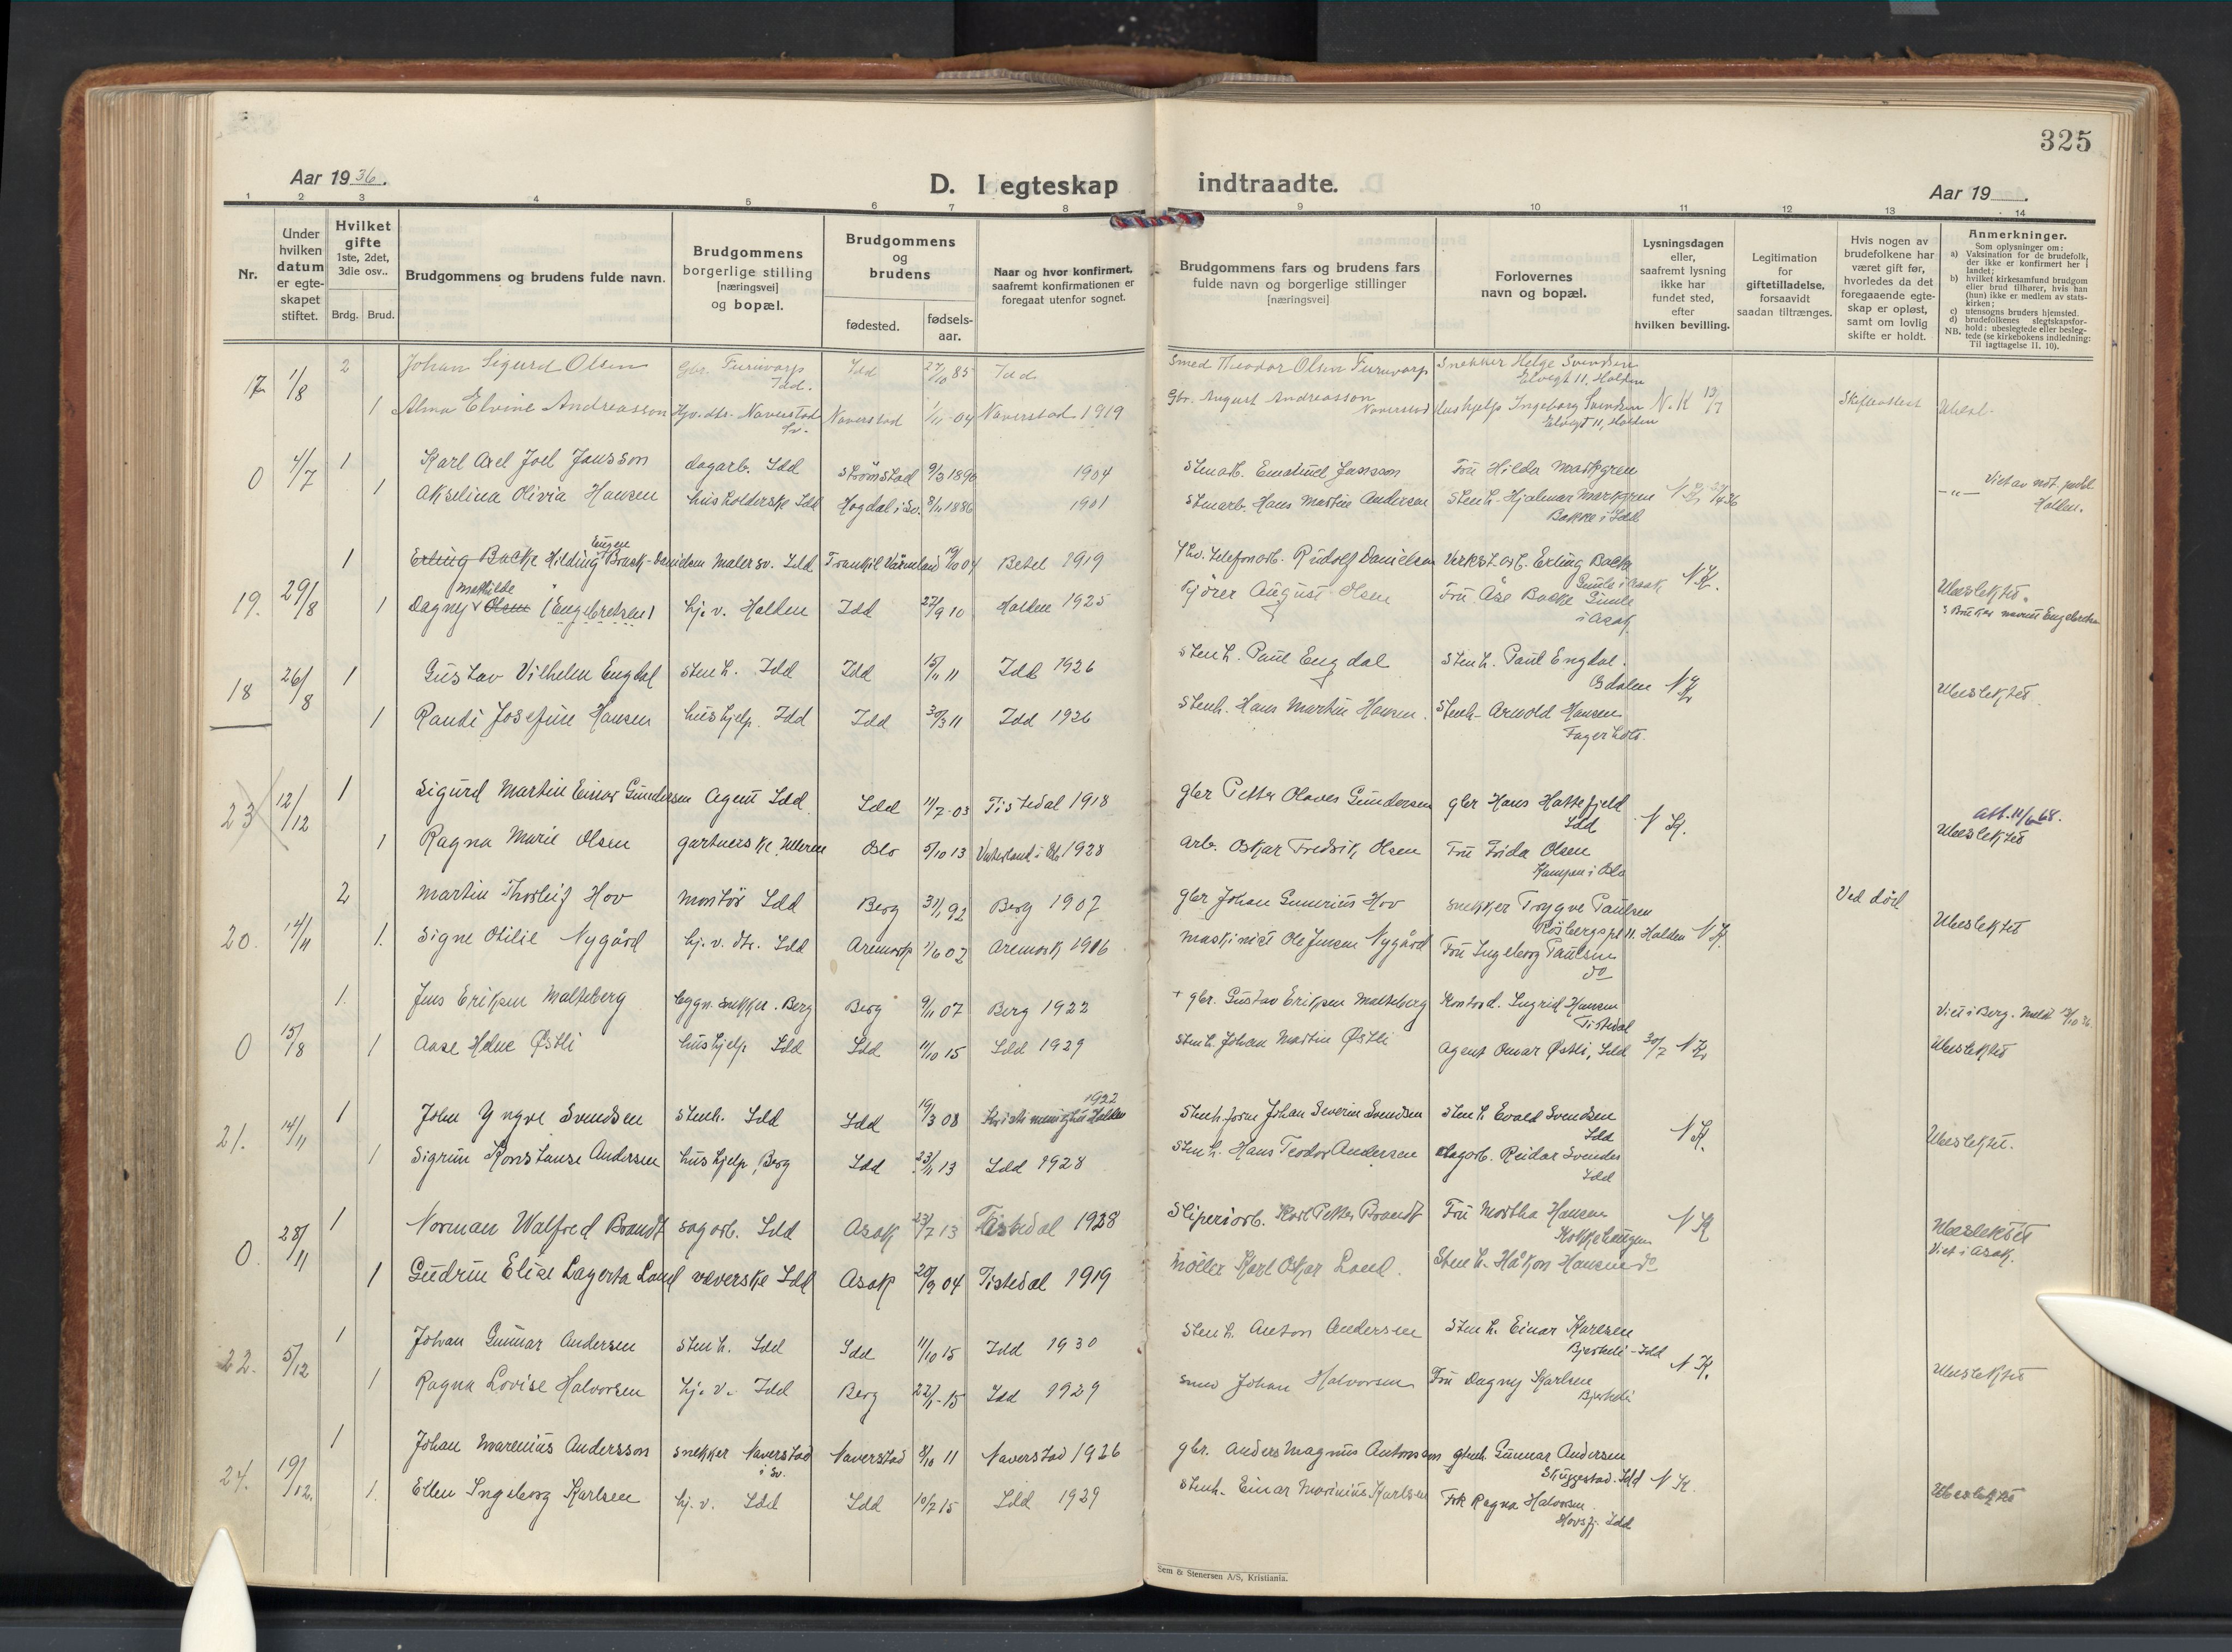 325
Aar 1936.
D. I egteskap indtraadte.
Aar 19
1 2 3 4 5 6 7 8 9 10 11 12 13 14
Nr.
Under hvilken datum er egteskapet stiftet.
Hvilket gifte 1ste, 2det, 3die osv..
Brdg. Brud.
Brudgommens og brudens fulde navn.
Brudgommens borgerlige stilling [næringsvei] og bopæl.
Brudgommens og brudens
fødested.
fødselsaar.
Naar og hvor konfirmert, saafremt konfirmationen er foregaat utenfor sognet.
Brudgommens fars og brudens fars fulde navn og borgerlige stillinger [næringsvei]
Forlovernes navn og bopæl.
Lysningsdagen eller, saafremt lysning ikke har fundet sted, efter hvilken bevilling.
Legitimation for giftetilladelse, forsaavidt saadan tiltrænges.
Hvis nogen av brudefolkene har været gift før, hvorledes da det foregaaende egteskap er opløst, samt om lovlig skifte er holdt.
Anmerkninger.
Som oplysninger om:
a) Vaksination for de brudefolk, der ikke er konfirmert her i landet;
b) hvilket kirkesamfund brudgom eller brud tilhører, hvis han (hun) ikke er medlem av statskirken;
c) utensogns bruders hjemsted.
d) brudefolkenes slegtskapsforhold: ubeslegtede eller beslegtede (se kirkebokens indledning:
NB. Til iagttagelse II, 10).
17 1/8 2 Johan Sigurd Olsen Gbr. Furuvarp Idd. Idd 27/10 85 Idd Smed Theodor Olsen Furuvarp Snekker Helge Svendsen Elvegt 11, Halden
1 Alma Elvine Andreasson Hjv. dtr. Naverstad Sv. Naverstad 1/11-04 Naverstad 1919 Gbr. August Andreasson Naverstad Hushjelp Ingeborg Svendsen Elvegt 11, Halden N.K 13/7 Skifteattest Ubesl.
0 4/7 1 Karl Axel Joel Jansson dagarb. Idd Strømstad 9/3 1890 1904 Stenarb. Emanuel Jansson Fru Hilda Markgren
1 Akselina Olivia Hansen husholderske Idd Hogdal i Sv. 8/11 1886 1901 Stenarb. Hans Martin Andersen Stenh. Hjalmar Markgren Bakke i Idd. Viet av not. publ. Halden.
19. 29/8 1 Erling Backe Hilding Eugen Brack-Danielsen Maler sv. Idd Trankil Värmland 19/10 04 Betel 1919 Telefonarb. Rudolf Danielsen Verkst. arb. Erling Backe Gimle i Asak N.K.
1 Dagny Mathilde Olsen (Engebretsen) hj. v. Halden Idd 27/9 10 Halden 1925 Kjører August Olsen Fru Åse Backe Gimle i Asak. Ubeslektet. Bruker navnet Engebretsen
18 26/8 1 Gustav Vilhelm Engdal Stenh. Idd Idd 15/11 11 Idd 1926 Stenh. Paul Engdal Stenh. Paul Engdal.
1 Randi Josefine Hansen hushjelp. Idd Idd 30/3 11 Idd 1926 Stenh. Hans Martin Hansen. Stenh. Arnold Hansen Fagerholt. Ubeslektet.
23 12/12 1 Sigurd Martin Einar Gundersen Agent Idd Idd 11/7-03 Tistedal 1918 gbr Petter Olaves Gundersen gbr Hans Hattefjeld Idd N K.
1 Ragna Marie Olsen gartnerske, Ulleren Oslo 5/10 13 Vaterland i Oslo 1928 Arb. Oskar Fredrik Olsen Fru Frida Olsen Kampen i Oslo Att. 11/6-68. Ubeslektet
20. 14/11 2 Martin Thorleif Hov Montør Idd Berg 31/1 92 Berg 1907 gbr Johan Gunerius Hov snekker Trygve Paulsen Rösbergspl 11. Halden N K. Ved död
1 Signe Otilie Nygård hj. v. dtr. Idd Aremark 1/6 02 Aremark 1916 Maskinist Ole Jensen Nygård Fru Ingeborg Paulsen do Ubeslektet
0 15/8 1 Jens Eriksen Malteberg bygn. snekker. Berg Berg 9/11 07 Berg 1922 + gbr. Gustav Eriksen Malteberg Kontord. Ingrid Hansen Tistedal Viet i Berg. Meldt 12/10 36.
1 Aase Helene Østli hushjelp Idd Idd 11/10 15 Idd 1929 Stenh. Johan Martin Østli Agent Omar Østli, Idd 30/7 N K. Ubeslektet
21. 14/11 1 John Yngve Svendsen Stenh. Idd Idd 19/3 08 1922 Halden Stenh. form Johan Severin Svendsen Stenh. Evald Svendsen Idd N K.
1 Sigrun Konstanse Andersen hushjelp, Berg Idd 23/11 13 Idd 1928 Stenh. Hans Teodor Andersen dagarb. Reidar Svendsen Idd Ubeslektet.
0. 28/11 1 Norman Walfred Brandt sagarb. Idd Asak 23/7 13 Tistedal 1928 Sliperiarb. Karl Petter Brandt Fru Martha Hansen Kokkehaugen N K Ubeslektet Viet i Asak.
1 Gudrun Elise Lagerta Lund veverske Idd Asak 20/9 04 Tistedal 1919 møller Karl Oskar Lund. Stenh. Håkon Hansen do
22. 5/12 1 Johan Gunnar Andersen Stenh. Idd Idd 11/10 15 Idd 1930 Stenh. Anton Andersen Stenh. Einar Karlsen Bjerkeli - Idd N K.
1 Ragna Lovise Halvorsen hj. v. Idd Berg 22/1-15 Idd 1929 smed Johan Halvorsen Fru Dagny Karlsen Bjerkeli Ubeslektet
24. 19/12. 1 Johan Marenius Andersson snekker Naverstad i Sv. Naverstad 8/10 11 Naverstad 1926 gbr. Anders Magnus Antonsson Stenh. Gunnar Andersen Skuggestad. Idd N K.
1. Ellen Ingeborg Karlsen hj. v. Idd Idd 10/7 15 Idd 1929 Stenh. Einar Marinius Karlsen Frk Ragna Halvorsen Idd Ubeslektet
Sem & Stenersen A/S, Kristiania.